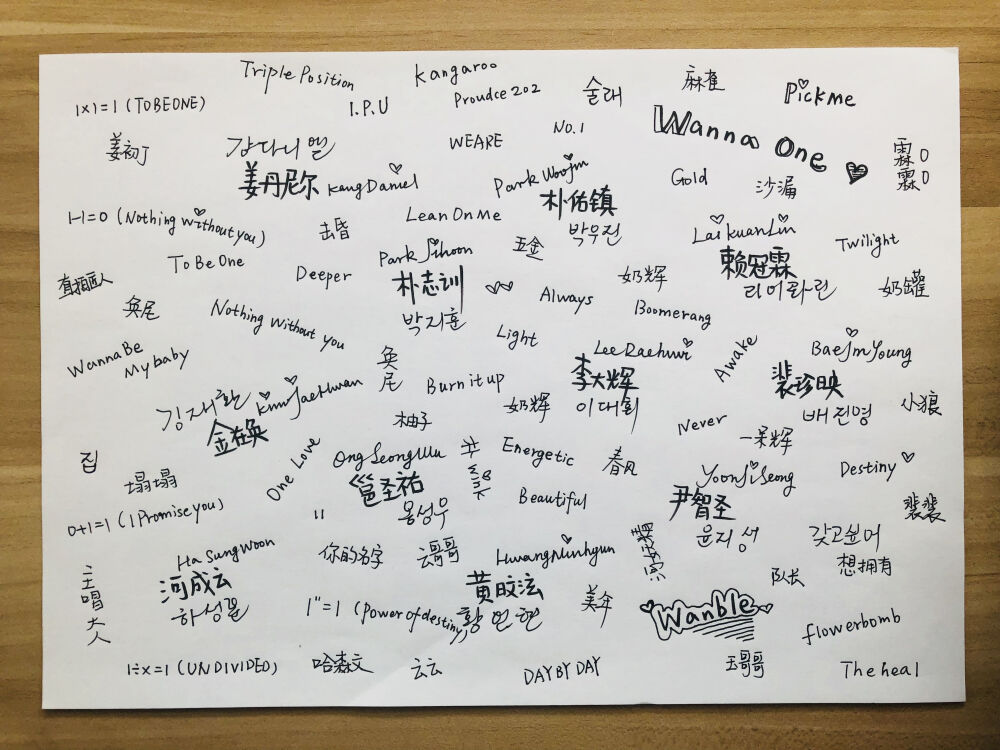 Triple Position
Kangaroo
麻雀
Pickme
1×1=1 (TOBEONE)
I.P.U
Proudce 202
술래
姜初丁
강다니엘
WEARE
No.1
Wanna One
霖0
霖0
姜丹尼尔 KangDaniel
Park Woojin
朴佑镇
박우진
Gold
沙漏
1-1=0 (Nothing without you)
Lean On Me
Lai kuanLin
赖冠霖
라이관린
Twilight
To Be One
Deeper
Park Jihoon
朴志训
박지훈
五金
奶辉
奶罐
直拍匠人
奂尼
Nothing without you
Always
Boomerang
Wanna Be
My baby
奂尼
Light
Lee Daehwi
李大辉
이대휘
Awake
BaeJinYoung
裴珍映
배진영
김재환 KimJaeHwan
金在奂
Burn it up
奶辉
小狼
柚子
Never
一呆辉
집
塌塌
One Love
OngSeongWu
邕圣祐
옹성우
Energetic
春风
YoonJiSeong
尹智圣
윤지성
Destiny
裴裴
0+1=1 (I Promise you)
Beautiful
갖고싶어
想拥有
Ha SungWoon
河成云
하성운
你的名字
云哥哥
HwangMinhyun
黄旼泫
황민현
队长
主唱大人
1¹¹=1 (Power of destiny)
美年
Wanble
flowerbomb
1÷x=1 (UNDIVIDED)
哈森文
云云
DAY BY DAY
玉哥哥
The heal